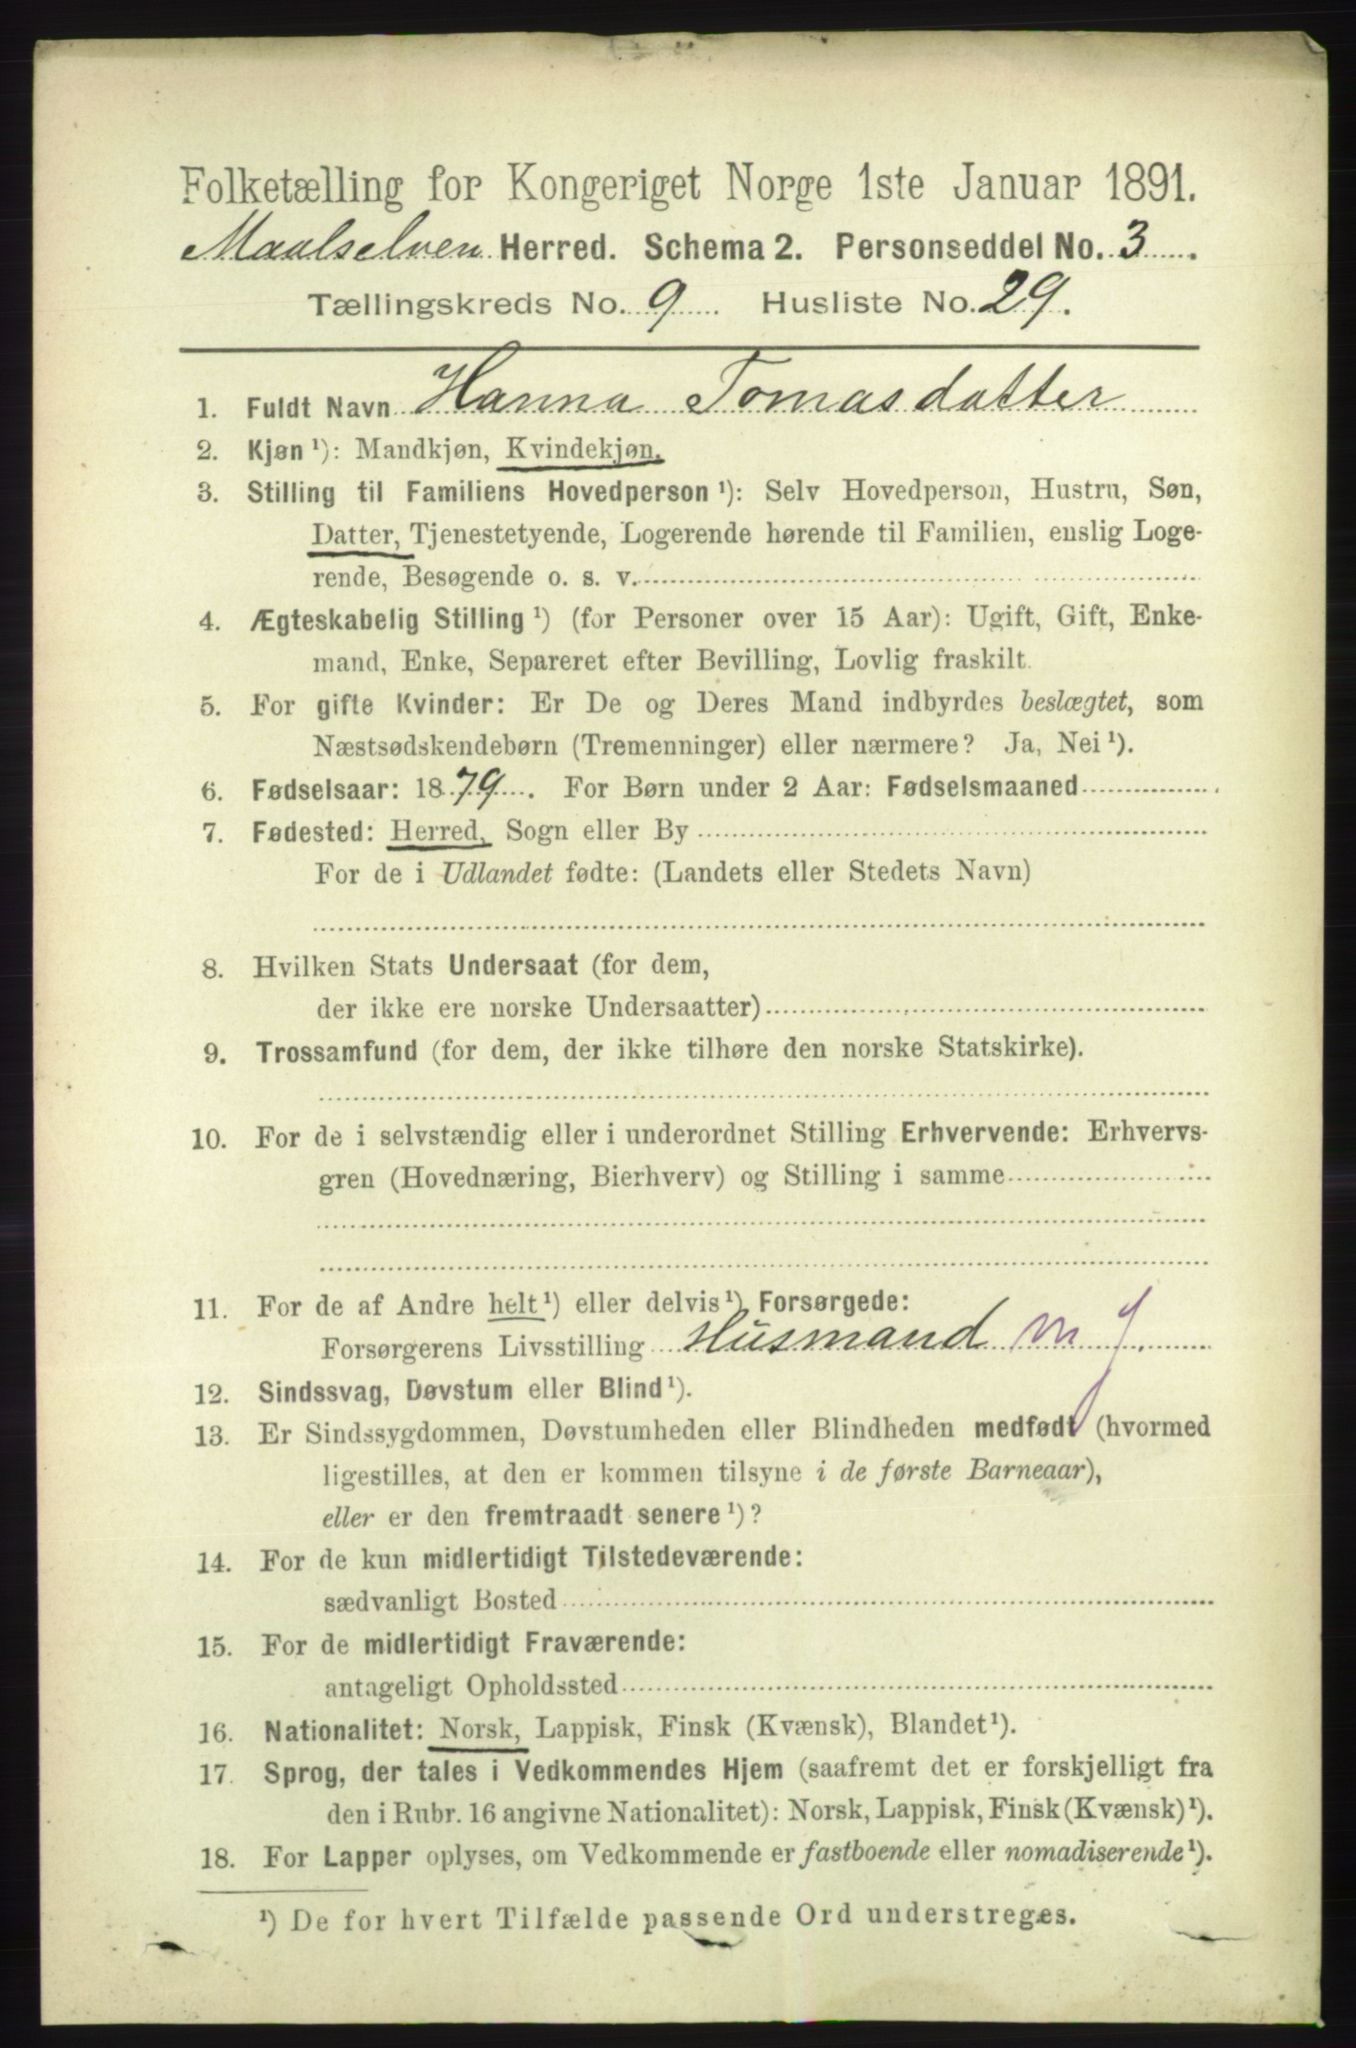 Folketælling for Kongeriget Norge 1ste Januar 1891.
Maalselven Herred. Schema 2. Personseddel No. 3
Tællingskreds No. 9 Husliste No. 29.
1. Fuldt Navn Hanna Tomasdatter
2. Kjøn ¹): Mandkjøn, Kvindekjøn.
3. Stilling til Familiens Hovedperson ¹): Selv Hovedperson, Hustru, Søn,
Datter, Tjenestetyende, Logerende hørende til Familien, enslig Loge-
rende, Besøgende o. s. v.
4. Ægteskabelig Stilling ¹) (for Personer over 15 Aar): Ugift, Gift, Enke-
mand, Enke, Separeret efter Bevilling, Lovlig fraskilt.
5. For gifte Kvinder: Er De og Deres Mand indbyrdes beslægtet, som
Næstsødskendebørn (Tremenninger) eller nærmere? Ja, Nei ¹).
6. Fødselsaar: 1879. For Børn under 2 Aar: Fødselsmaaned
7. Fødested: Herred, Sogn eller By
For de i Udlandet fødte: (Landets eller Stedets Navn)
8. Hvilken Stats Undersaat (for dem,
der ikke ere norske Undersaatter)
9. Trossamfund (for dem, der ikke tilhøre den norske Statskirke).
10. For de i selvstændig eller i underordnet Stilling Erhvervende: Erhvervs-
gren (Hovednæring, Bierhverv) og Stilling i samme
11. For de af Andre helt ¹) eller delvis ¹) Forsørgede:
Forsørgerens Livsstilling Husmand m J.
12. Sindssvag, Døvstum eller Blind ¹).
13. Er Sindssygdommen, Døvstumheden eller Blindheden medfødt (hvormed
ligestilles, at den er kommen tilsyne i de første Barneaar),
eller er den fremtraadt senere ¹)?
14. For de kun midlertidigt Tilstedeværende:
sædvanligt Bosted
15. For de midlertidigt Fraværende:
antageligt Opholdssted
16. Nationalitet: Norsk, Lappisk, Finsk (Kvænsk), Blandet ¹).
17. Sprog, der tales i Vedkommendes Hjem (saafremt det er forskjelligt fra
den i Rubr. 16 angivne Nationalitet): Norsk, Lappisk, Finsk (Kvænsk) ¹).
18. For Lapper oplyses, om Vedkommende er fastboende eller nomadiserende ¹).
¹) De for hvert Tilfælde passende Ord understreges.